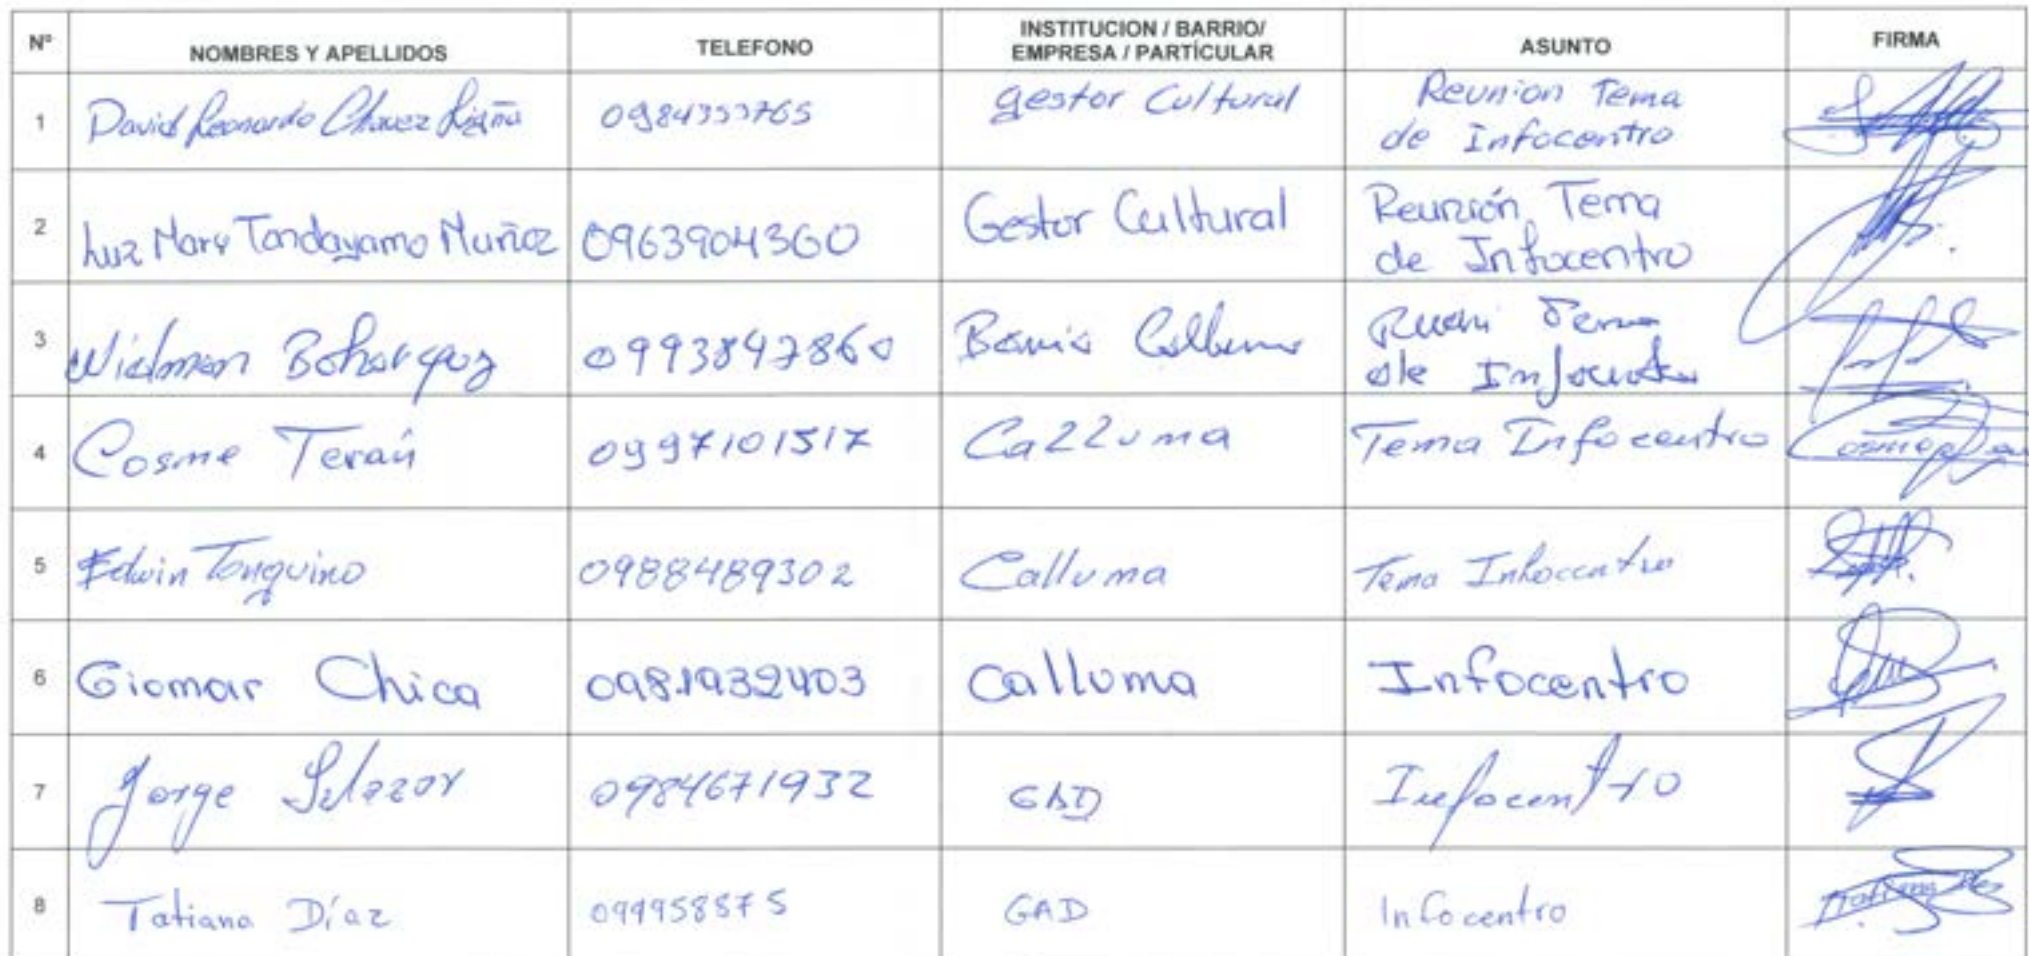 Nº NOMBRES Y APELLIDOS TELEFONO INSTITUCION / BARRIO/ EMPRESA / PARTÍCULAR ASUNTO FIRMA
1 David Leonardo Chavez 0984353765 gestor Cultural Reunion Tema de Infocentro
2 Luz Mary Tandayamo Muñoz 0963904360 Gestor Cultural Reunión, Tema de Infocentro
3 Widman Bohorquez 0993847860 Barrio Tema de Infocentro
4 Cosme Terán 0997101517 Calluma Tema Infocentro Cosme
5 Edwin Tonguino 0988489302 Calluma Tema Infocentro
6 Giomar Chica 0981932403 Calluma Infocentro
7 Jorge Salazar 0984671932 GAD Infocentro
8 Tatiana Díaz 099958575 GAD Infocentro